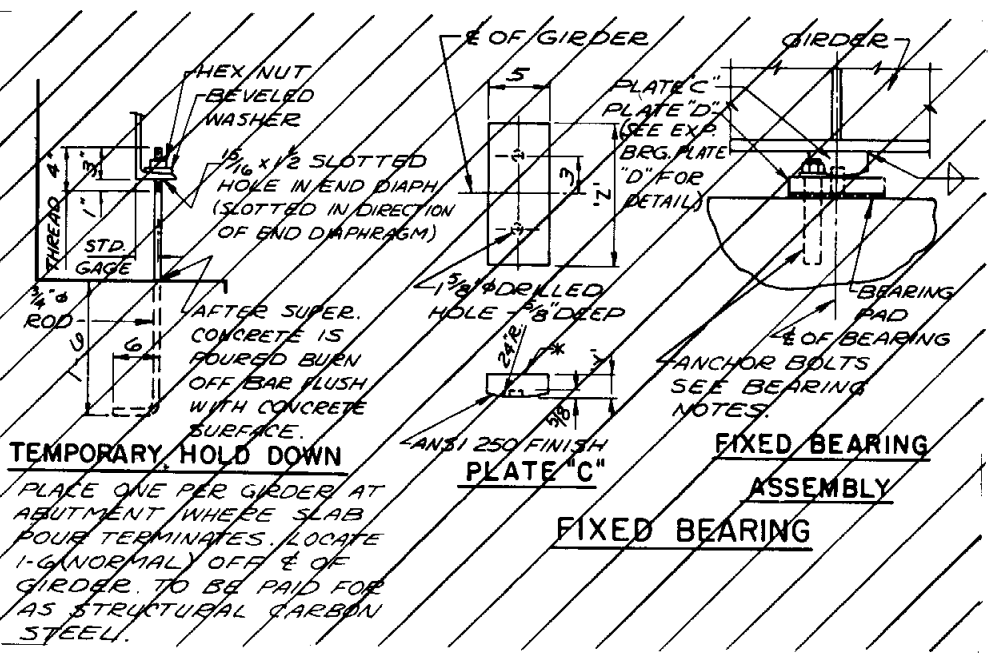 HEX NUT
BEVELED
WASHER
15/16 x 1 1/2 SLOTTED
HOLE IN END DIAPH
(SLOTTED IN DIRECTION
OF END DIAPHRAGM)
THREAD 4"
3"
1"
STD.
GAGE
3/4" φ
ROD
6
1'-6
AFTER SUPER.
CONCRETE IS
POURED BURN
OFF BAR FLUSH
WITH CONCRETE
SURFACE.
TEMPORARY HOLD DOWN
PLACE ONE PER GIRDER AT
ABUTMENT WHERE SLAB
POUR TERMINATES. LOCATE
1-6 (NORMAL) OFF ℄ OF
GIRDER. TO BE PAID FOR
AS STRUCTURAL CARBON
STEEL.
℄ OF GIRDER
5
3
1 5/8" φ DRILLED
HOLE - 5/8" DEEP
24"R.
*
5/8
ANSI 250 FINISH
PLATE "C"
GIRDER
PLATE "C"
PLATE "D"
(SEE EXP.
BRG. PLATE
"D" FOR
DETAIL)
BEARING
PAD
℄ OF BEARING
ANCHOR BOLTS
SEE BEARING
NOTES.
FIXED BEARING
ASSEMBLY
FIXED BEARING